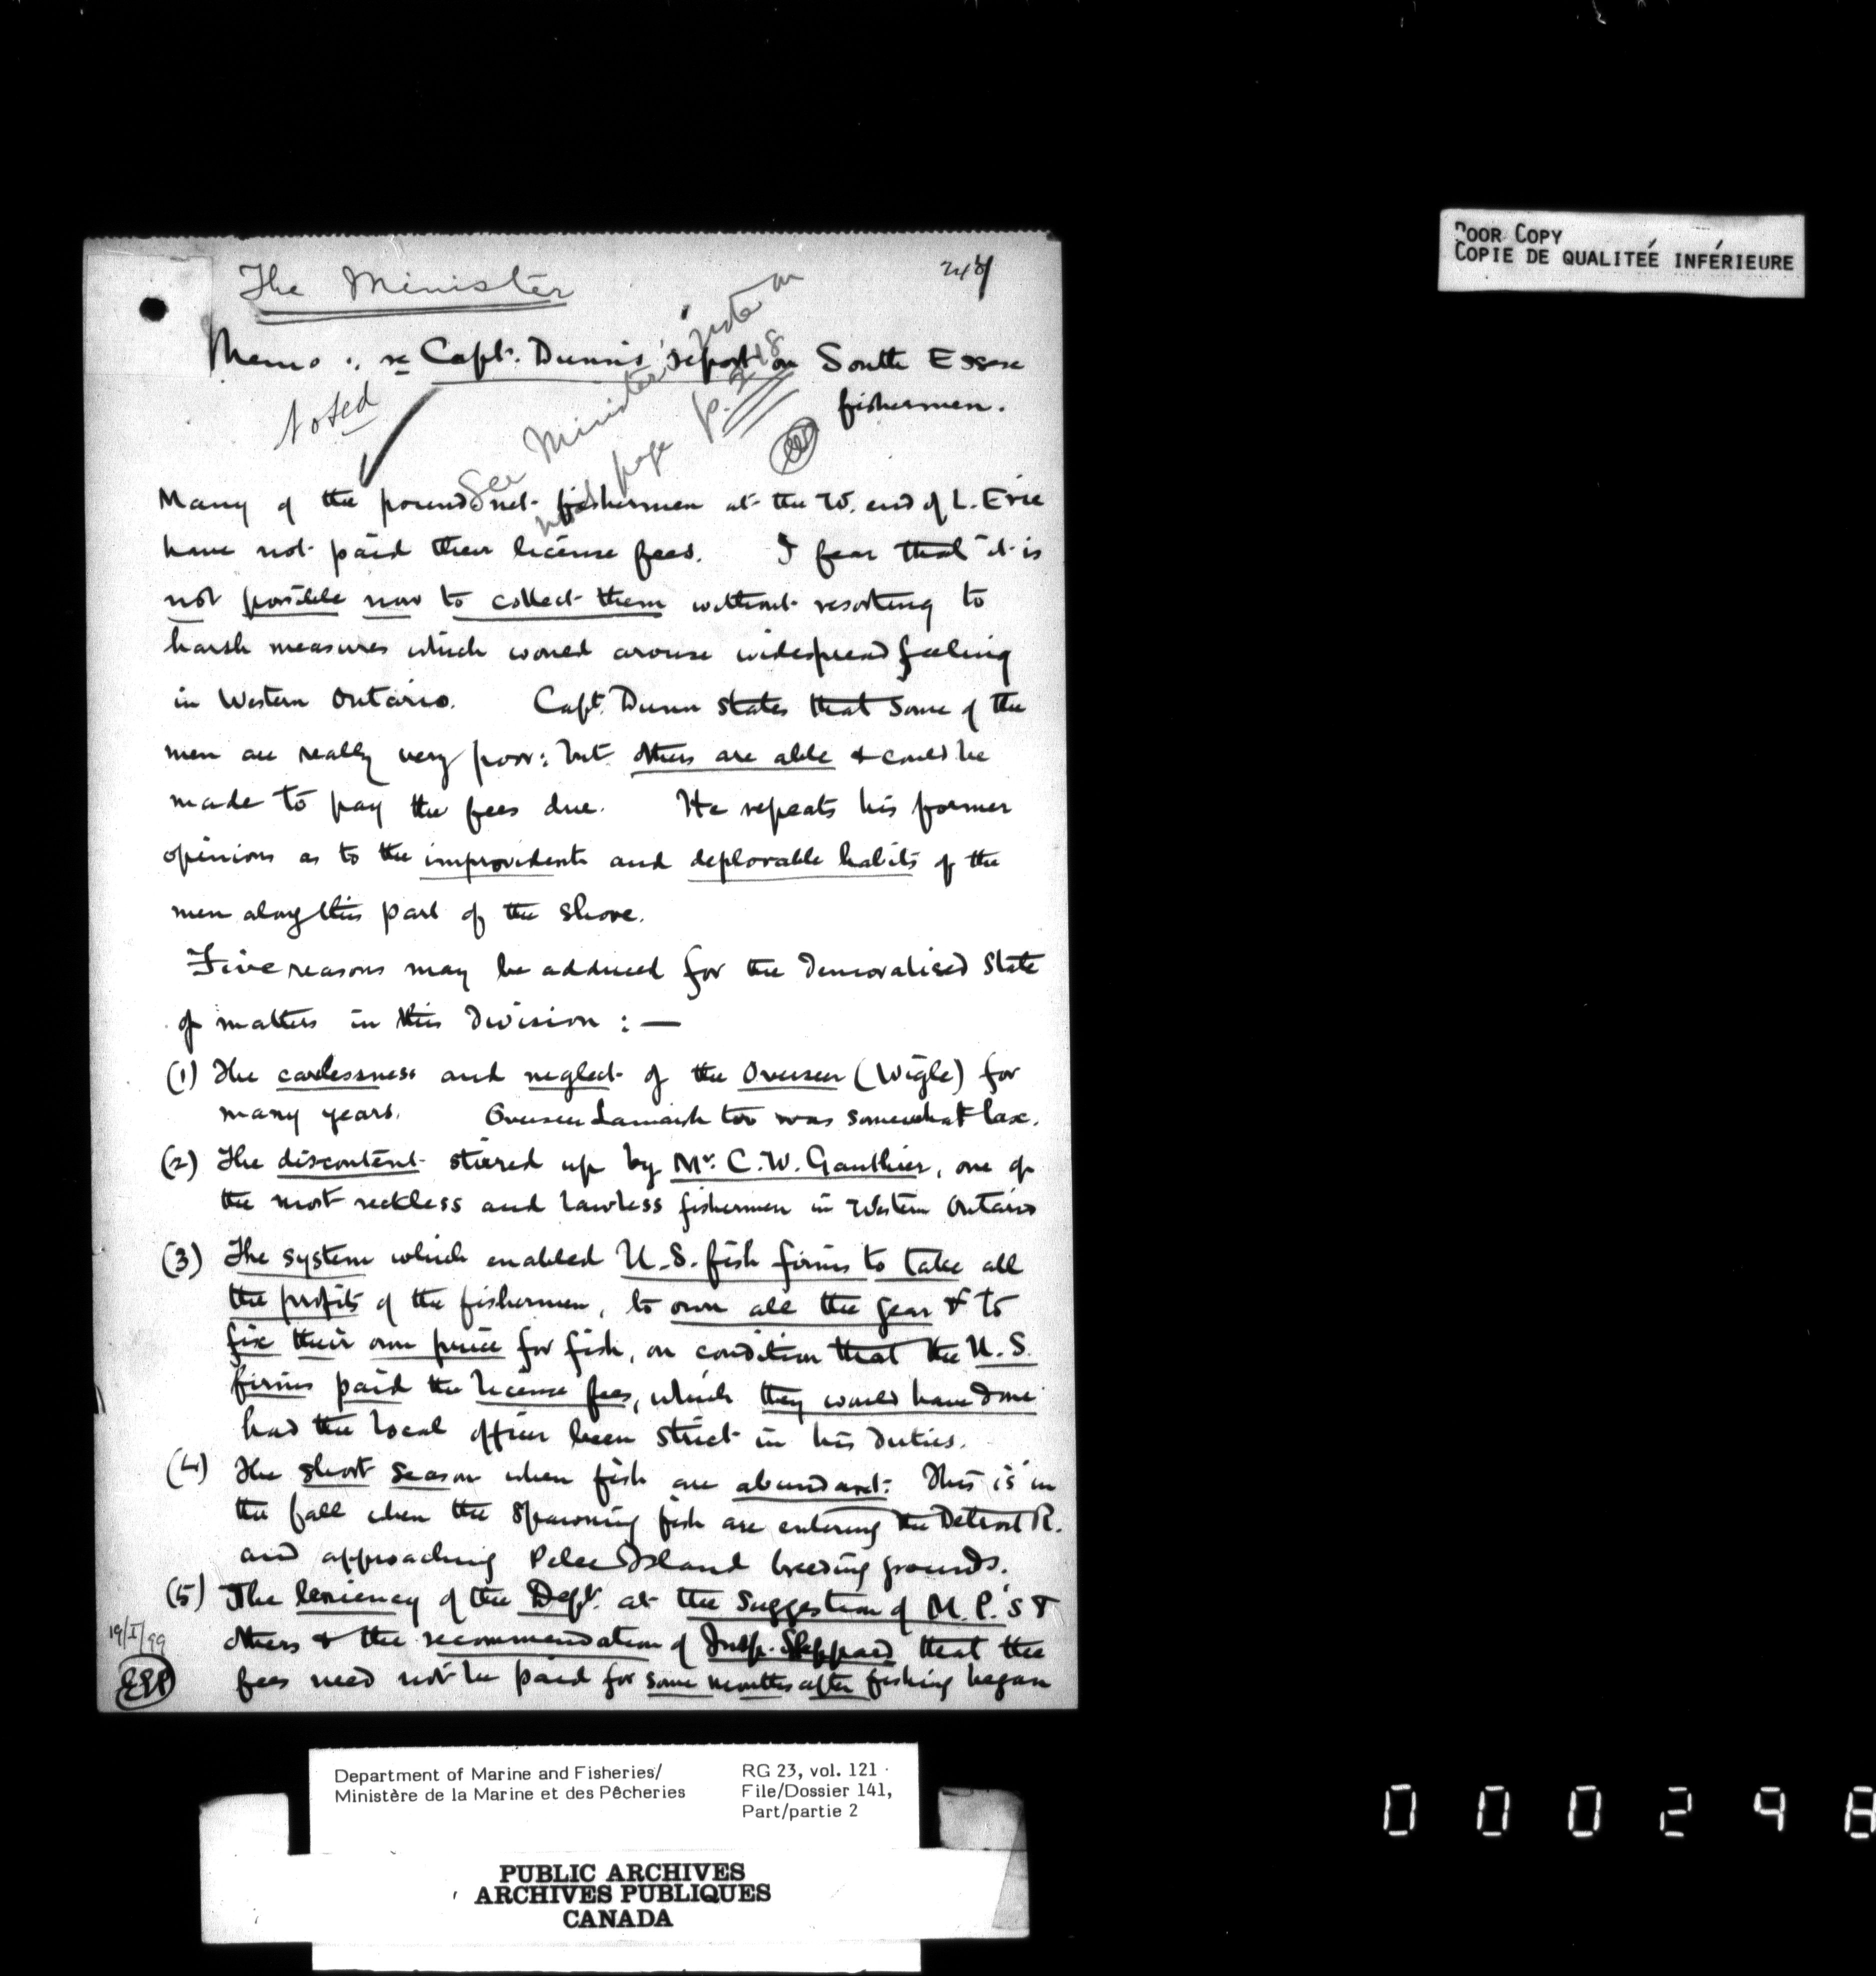 The Minister
Memo : re Capt. Dunn's report on South Essex
fishermen.
Noted
See Minister's note on
next page p. 248
Many of the pound net fishermen at the W. end of L. Erie
have not paid their license fees. I fear that it is
not possible now to collect them without resorting to
harsh measures which would arouse widespread feeling
in Western Ontario. Capt. Dunn states that some of the
men are really very poor: but others are able & could be
made to pay the fees due. He repeats his former
opinions as to the improvidents and deplorable habits of the
men along this part of the shore.
Five reasons may be adduced for the demoralised state
of matters in this division : —
(1) The carelessness and neglect of the Overseer (Wigle) for
many years. Overseer Lamarsh too was somewhat lax.
(2) The discontent stirred up by Mr. C. W. Gauthier, one of
the most reckless and lawless fishermen in Western Ontario
(3) The system which enabled U.S. fish firms to take all
the profits of the fishermen, to own all the gear & to
fix their own price for fish, on condition that the U.S.
firms paid the license fees, which they would have done
had the local officer been strict in his duties.
(4) The short season when fish are abundant: This is in
the fall when the spawning fish are entering the Detroit R.
and approaching Pelee Island breeding grounds.
(5) The leniency of the Dept. at the suggestion of M.P.'s &
others & the recommendation of Insp. Sheppard that the
fees need not be paid for some months after fishing began
19/I/99
EEP
POOR COPY
COPIE DE QUALITEÉ INFÉRIEURE
Department of Marine and Fisheries/
Ministère de la Marine et des Pêcheries
RG 23, vol. 121
File/Dossier 141,
Part/partie 2
PUBLIC ARCHIVES
ARCHIVES PUBLIQUES
CANADA
000298